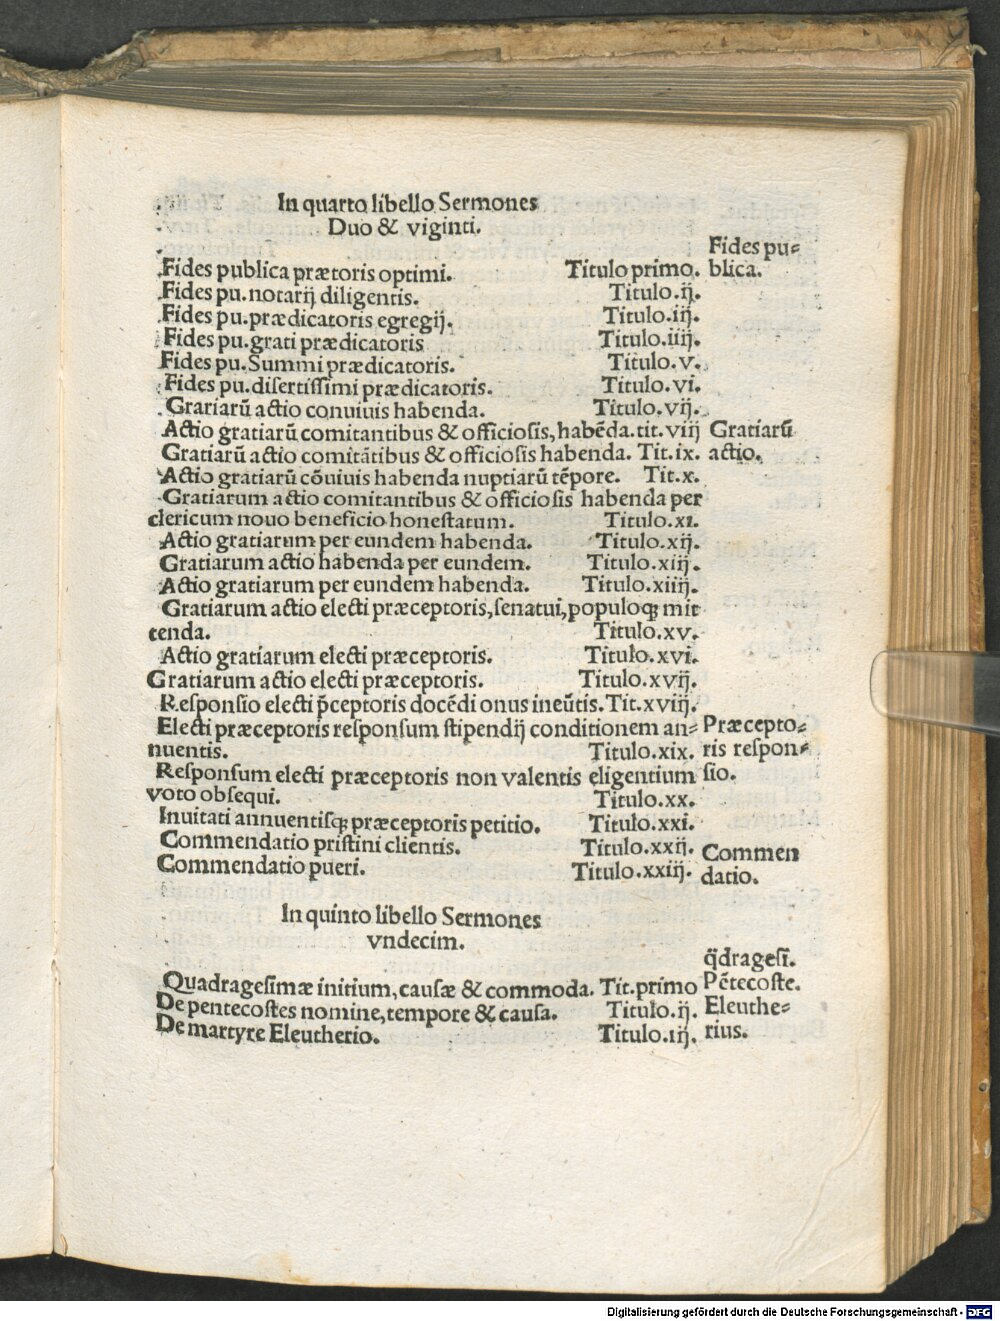 In quarto libello Sermones
Duo & viginti.
Fides pu=
blica.
Fides publica prætoris optimi. Titulo primo.
Fides pu. notarij diligentis. Titulo.ij.
Fides pu. prædicatoris egregij. Titulo.iij.
Fides pu. grati prædicatoris Titulo.iiij.
Fides pu. Summi prædicatoris. Titulo.v.
Fides pu. disertissimi prædicatoris. Titulo.vi.
Grariarũ actio conuiuis habenda. Titulo.vij.
Actio gratiarũ comitantibus & officiosis, habẽda. tit. viij
Gratiarũ actio comitãtibus & officiosis habenda. Tit. ix.
Gratiarũ
actio.
Actio gratiarũ cõuiuis habenda nuptiarũ tẽpore. Tit.x.
Gratiarum actio comitantibus & officiosis habenda per
clericum nouo beneficio honestatum. Titulo.xi.
Actio gratiarum per eundem habenda. Titulo.xij.
Gratiarum actio habenda per eundem. Titulo.xiij.
Actio gratiarum per eundem habenda. Titulo.xiiij.
Gratiarum actio electi præceptoris, senatui, populoqꝫ mit
tenda. Titulo.xv.
Actio gratiarum electi præceptoris. Titulo.xvi.
Gratiarum actio electi præceptoris. Titulo.xvij.
Responsio electi p̃ceptoris docẽdi onus ineũtis. Tit.xviij.
Electi præceptoris responsum stipendij conditionem an=
nuentis. Titulo.xix.
Præcepto=
ris respon=
sio.
Responsum electi præceptoris non valentis eligentium
voto obsequi. Titulo.xx.
Inuitati annuentisqꝫ præceptoris petitio. Titulo.xxi.
Commendatio pristini clientis. Titulo.xxij.
Commendatio pueri. Titulo.xxiij.
Commen
datio.
In quinto libello Sermones
vndecim.
q̃dragesĩ.
Quadragesimæ initium, causæ & commoda. Tit. primo
Pẽtecoste.
De pentecostes nomine, tempore & causa. Titulo.ij.
De martyre Eleutherio. Titulo.iij.
Eleuthe=
rius.
Digitalisierung gefördert durch die Deutsche Forschungsgemeinschaft - DFG